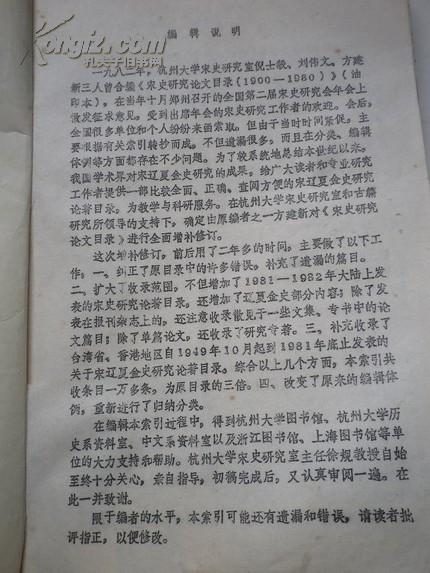 编辑说明
一九八二年，杭州大学宋史研究室倪士毅、刘伟文、方建
新三人曾合编《宋史研究论文目录（1900—1980）》（油
印本），在当年十月郑州召开的全国第二届宋史研究会年会上
散发征求意见，受到出席年会的宋史研究工作者的欢迎。会后，
全国很多单位和个人纷纷来函索取。但由于当时时间紧促，主
要根据有关索引转抄而成，不但遗漏很多，而且在分类、编辑
体例等方面都存在不少问题。为了较系统地总结本世纪以来，
我国学术界对宋辽夏金史研究的成果，给广大读者和专业研究
工作者提供一部比较全面、正确、查阅方便的宋辽夏金史研究
论著目录，为教学与科研服务。在杭州大学宋史研究室和古籍
研究所领导的支持下，确定由原编者之一方建新对《宋史研究
论文目录》进行全面增补修订。
这次增补修订，前后用了二年多的时间，主要做了以下工
作：一、纠正了原目录中的许多错误，补充了遗漏的篇目。
二、扩大了收录范围，不但增加了1981—1982年大陆上发
表的宋史研究论著目录，还增加了辽夏金史部分内容；除了发
表在报刊杂志上的，还注意收录散见于一些文集、专书中的论
文篇目；除了单篇论文，还收录了研究专著。三、补充收录了
台湾省、香港地区自1949年10月起到1981年底止发表的
关于宋辽夏金史研究论著目录。综合以上几个方面，本索引共
收条目一万多条，为原目录的三倍。四、改变了原来的编辑体
例，重新进行了归纳分类。
在编辑本索引过程中，得到杭州大学图书馆、杭州大学历
史系资料室、中文系资料室以及浙江图书馆、上海图书馆等单
位的大力支持和帮助。杭州大学宋史研究室主任徐规教授自始
至终十分关心，亲自指导，初稿完成后，又认真审阅一遍。在
此一并致谢。
限于编者的水平，本索引可能还有遗漏和错误，请读者批
评指正，以便修改。
Kongfz.com
孔夫子旧书网